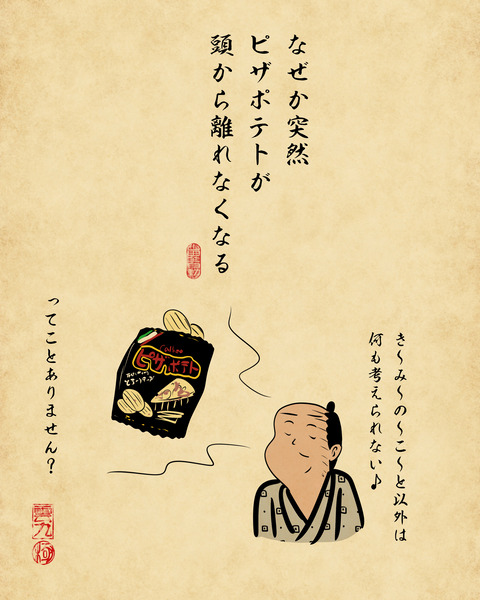 なぜか突然
ピザポテトが
頭から離れなくなる
き〜み〜の〜こ〜と以外は
何も考えられない♪
Calbee
ピザポテト
ってことありません？